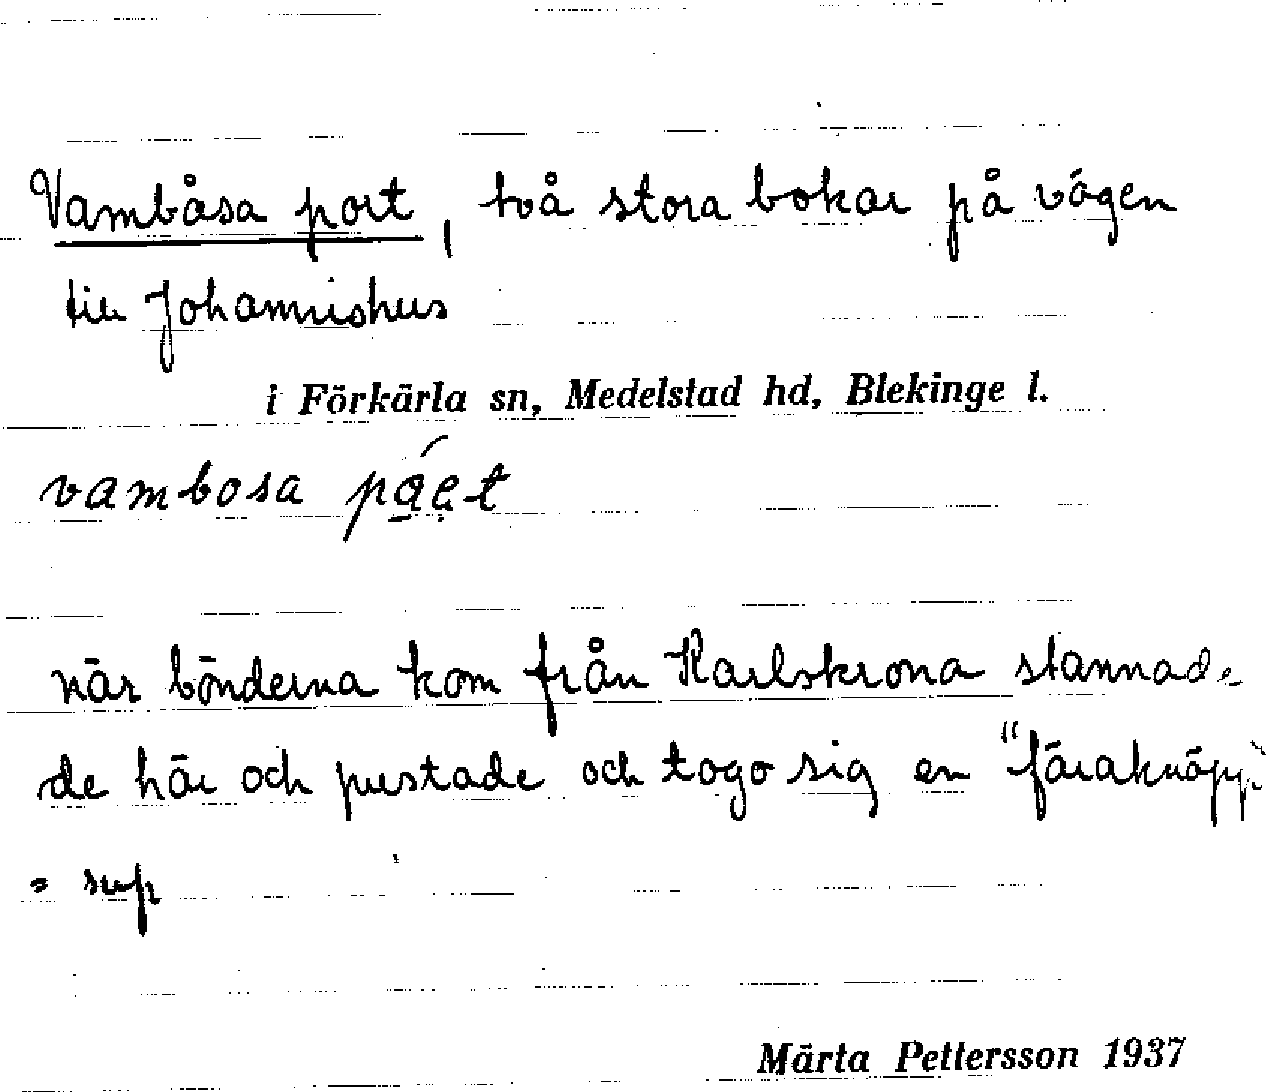 Vambåsa port, två stora bokar på vägen
till Johannishus
i Förkärla sn, Medelstad hd, Blekinge l.
vambosa
när bönderna kom från Karlskrona stannade
de här och pustade och togo sig en "färaknäpp"
= sup
Märta Pettersson 1937